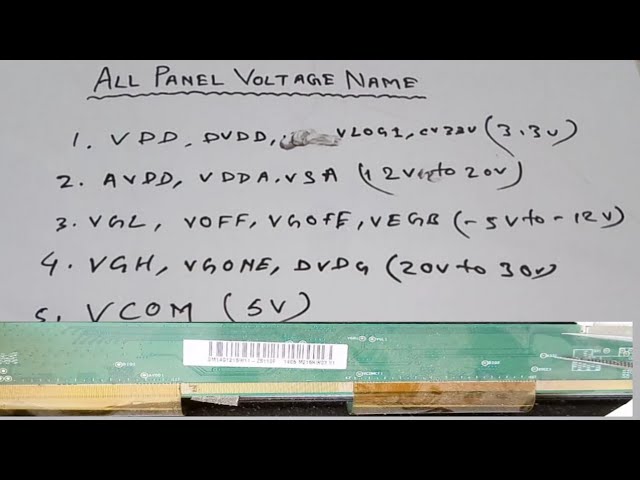 ALL PANEL VOLTAGE NAME
1. VDD, DVDD, VLOG1, CV33V (3.3V)
2. AVDD, VDDA, VSA (12V to 20V)
3. VGL, VOFF, VGOFF, VEGB (-5V to -12V)
4. VGH, VGONE, DVDG (20V to 30V)
5. VCOM (5V)